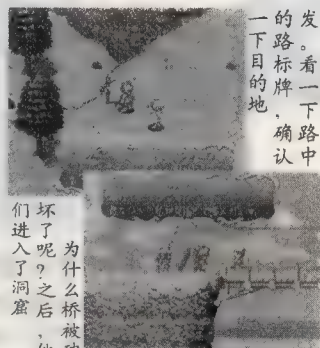 发。看一下路中
的路标牌,确认
一下目的地
为什么桥被
坏了呢?之后,
们进入了洞窟